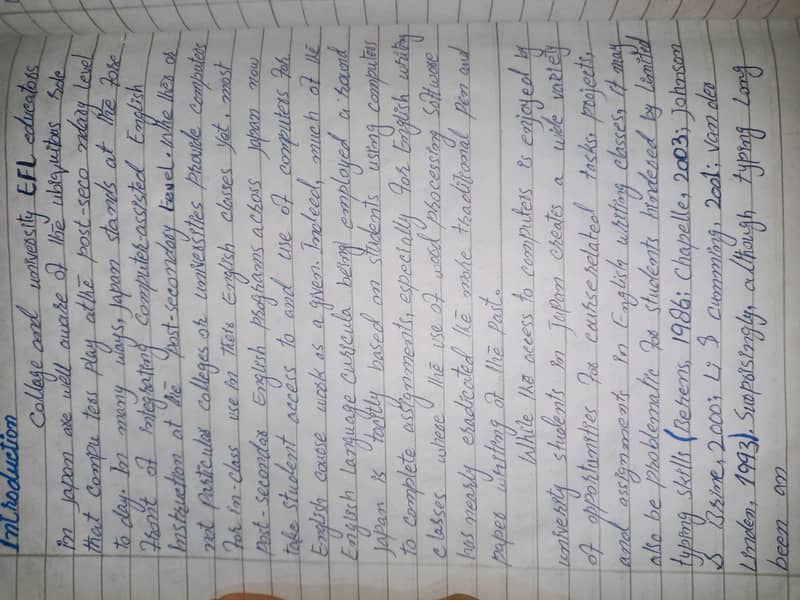 Introduction
Collage and university EFL educators
in japan are well aware of the ubiquitous role
that compu ters play atthe post-seco ndary level
to day. In many ways, japan stands at the fore
front of integrating Computer-assisted English
Instruction at the post-secondary Level. whe ther or
not Particular colleges or universities Provide computers
for in-class use in their English classes yet, most
post-secondar English programs across Japan now
take student access to and use of computers for
English course work as a given. Indeed, much of the
English language curicula being employed a round
Japan is tacitly based on students using computers
to complete assignments, especially for English writing
classes where the use of wod processing software
has nearly eradicated the more traditional Pen and
paper writing of the Past.
While the access to computers is enjoyed by
university students in Japan creates a wide variety
of opportunities for course related tasks, projects,
and assignments in English writing classes, it may
also be problematic for students hindered by limited
typing skills (Berens, 1986; Chapelle, 2003; Johnson
& Brine, 2000; Li & Cumming, 2001; Van der
Linden, 1993). Surpposingly, although typing Long
been an